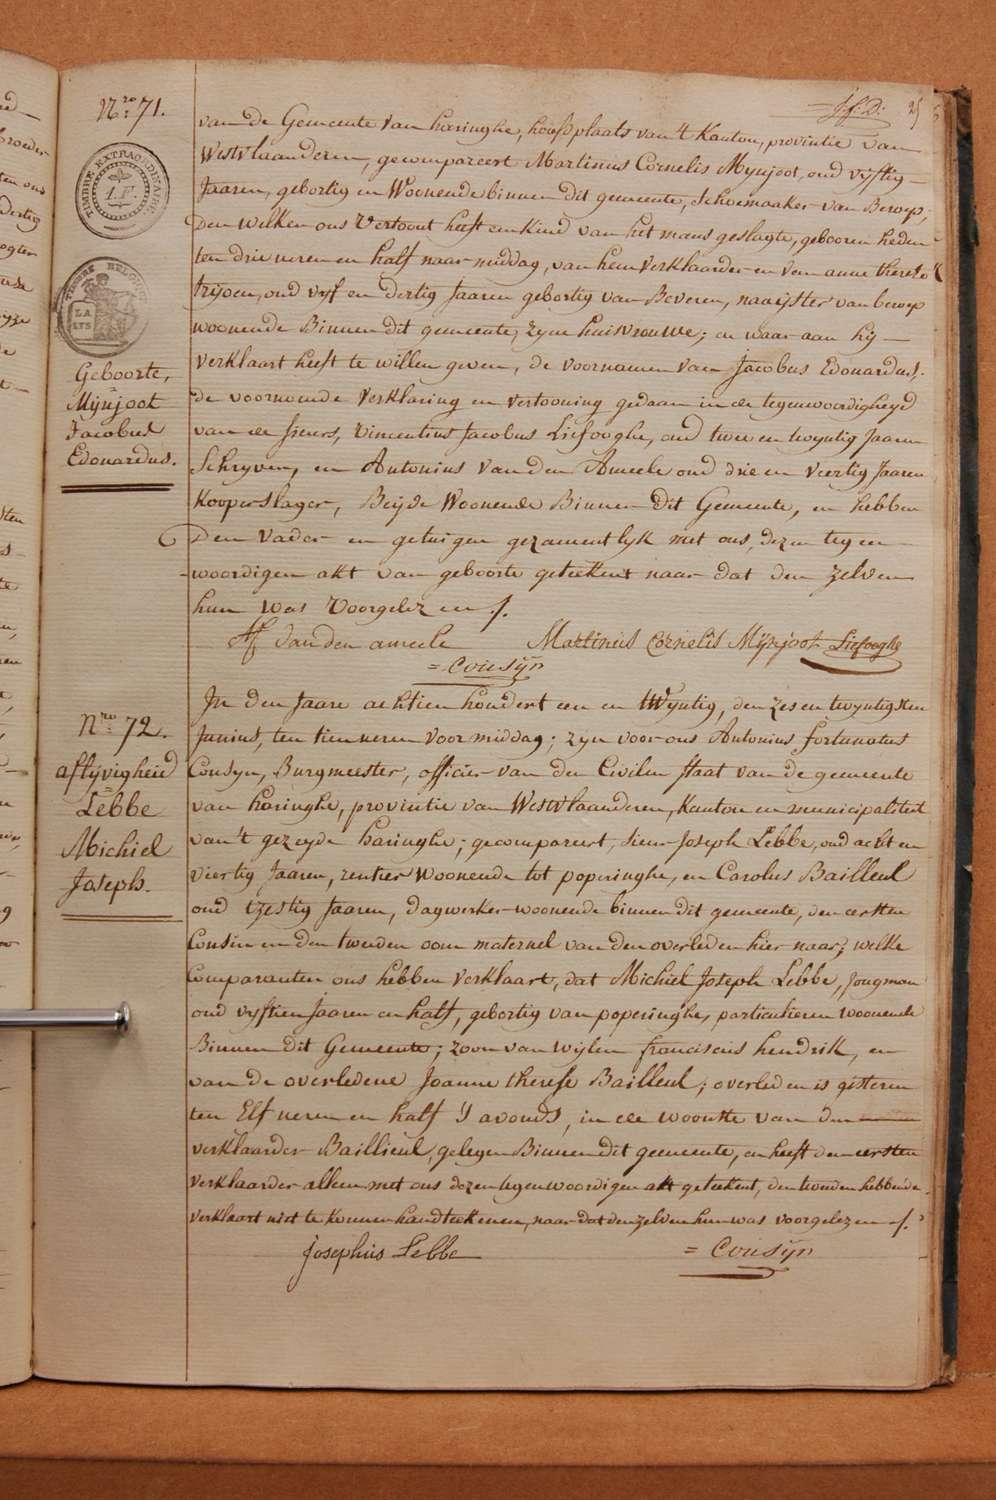 Nro 71.
TIMBRE EXTRAORDINAIRE
1.F.
TIMBRE BELGIQUE
LA
LYS
Geboorte,
Mijnjoot
Jacobus
Edouardus.
25
van de Gemeente van haringhe, hoofdplaats van 't Kanton, provintie van
Westvlaanderen, gecompareert Martinus Cornelis Mynjoot, oud vyftig
Jaaren, gebortig en Woonende binnen dit gemeente, Schoemaaker van Beroep,
Den welken ons Vertoont heeft een Kind van het mans geslagte, gebooren heden
ten drie uren en half naar middag, van hem Verklaarder en van anne therese
trijoen, oud vyf en dertig Jaaren gebortig van Beveren, naaijster van beroep
woonende Binnen dit gemeente, zyne huisvrouwe; en waar aan hij
verklaart heeft te willen geven, de voornamen van Jacobus Edouardus,
de voornoemde verklaring en vertooning gedaan in de tegenwoordigheyd
van de sieurs, Vincentius Jacobus Liefooghe, oud twee en twyntig Jaaren
Schryver, en Antonius Van den Ameele oud drie en veertig Jaaren
Kooperslager, Beijde Woonende Binnen Dit Gemeente, en hebben
Den Vader en getuigen gezamentlyk met ons, dezen tegen
woordigen akt van geboorte geteekent naar dat den zelven
hun was Voorgelezen /.
Af Vanden ameele Martinus Cornelis Mijnjoot Liefooghe
= Cousijn
Nro 72.
aflijvigheid
Lebbe
Michiel
Joseph.
In den Jaare achtien hondert een en twyntig, den zes en twyntigsten
Junius, ten tien uren voor middag; zyn voor ons Antonius fortunatus
Cousyn, Burgmeester, officier van den Civilen staat van de gemeente
van haringhe, provintie van Westvlaanderen, Kanton en municipaliteit
van 't gezeyde haringhe; gecompareert, sieur Joseph Lebbe, oud acht en
viertig Jaaren, rentier Woonende tot poperinghe, en Carolus Bailleul
oud tzestig Jaaren, dagwerker woonende binnen dit gemeente, den eersten
Cousin en den tweeden oom maternel van den overleden hier naar; welke
Comparanten ons hebben verklaart, dat Michiel Joseph Lebbe, Jongman
oud vyftien Jaaren en half, gebortig van poperinghe, particulieren woonende
Binnen dit Gemeente; zoon van wijlen franciscus hendrik, en
van de overledene Joanne therese Bailleul; overleden is gisteren
ten Elf uren en half 's avonds, in de woonste van den
verklaarder Baillieul, gelegen Binnen dit gemeente, en heeft den eersten
verklaarder alleen met ons dezen tegenwoordigen akt geteekent, den tweeden hebbende
verklaart niet te konnen handteekenen, naar dat den zelven hun was voorgelezen /.
Josephus Lebbe = Cousijn